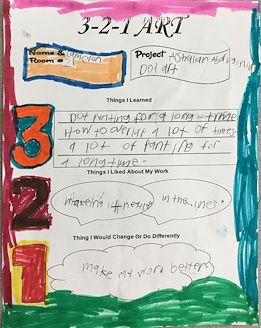 3-2-1 ART
Name & Cameron
Room #
Project Astralian Aboriginal
Dot art
Things I Learned
3
Dot painting for a long time
How to over lap a lot of times
a lot of painting for
a long time.
Things I Liked About My Work
2
makeing it neat
in the lines.
Thing I Would Change Or Do Differently
1
make my work better.